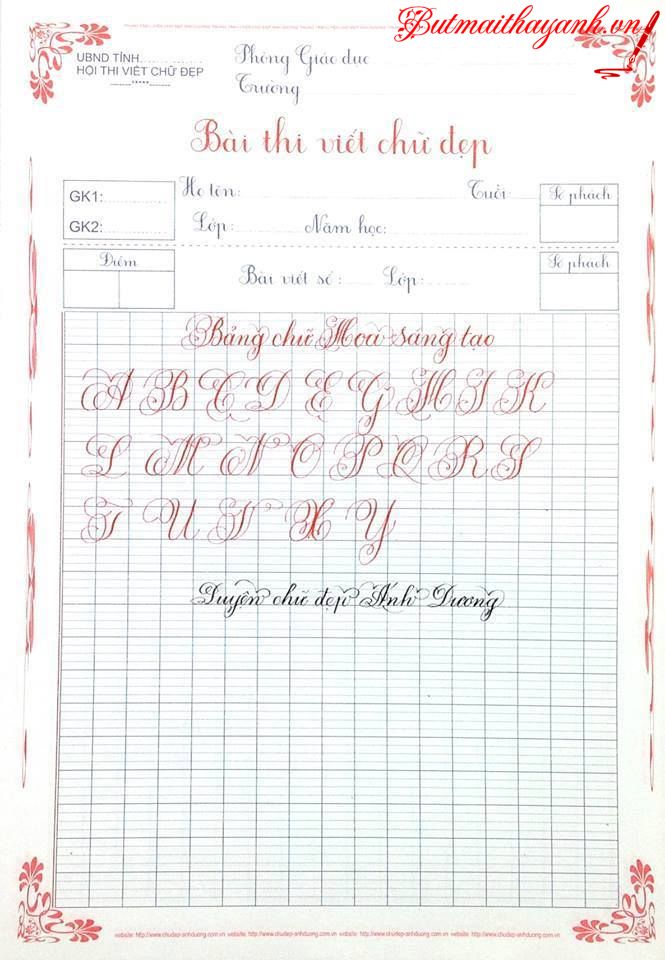 Butmaithayanh.vn
UBND TỈNH
HỘI THI VIẾT CHỮ ĐẸP
-----*****-----
Phòng Giáo dục
Trường
Bài thi viết chữ đẹp
GK1:
GK2:
Họ tên: Tuổi:
Lớp: Năm học:
Số phách
Điểm
Bài viết số: Lớp:
Số phách
Bảng chữ Hoa sáng tạo
A B C D E G H I K
L M N O P Q R S
T U V X Y
Luyện chữ đẹp Ánh Dương
website: http://www.chudep-anhduong.com.vn website: http://www.chudep-anhduong.com.vn website: http://www.chudep-anhduong.com.vn website: http://www.chudep-anhduong.com.vn